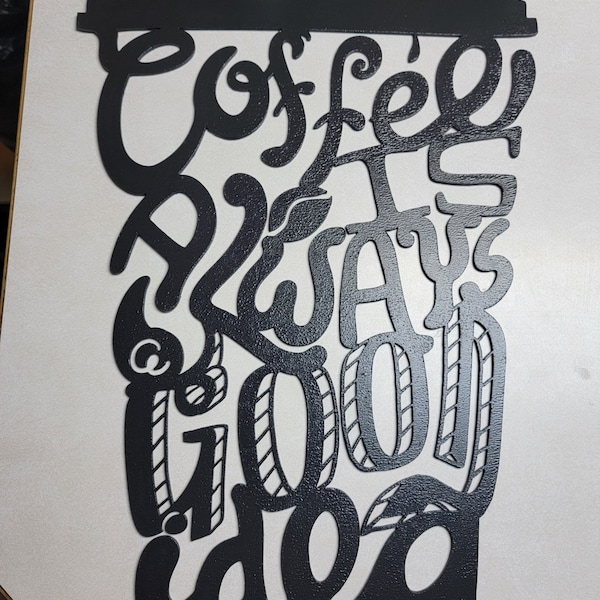 Coffee
IS
ALWAYS
a
GOOD
idea